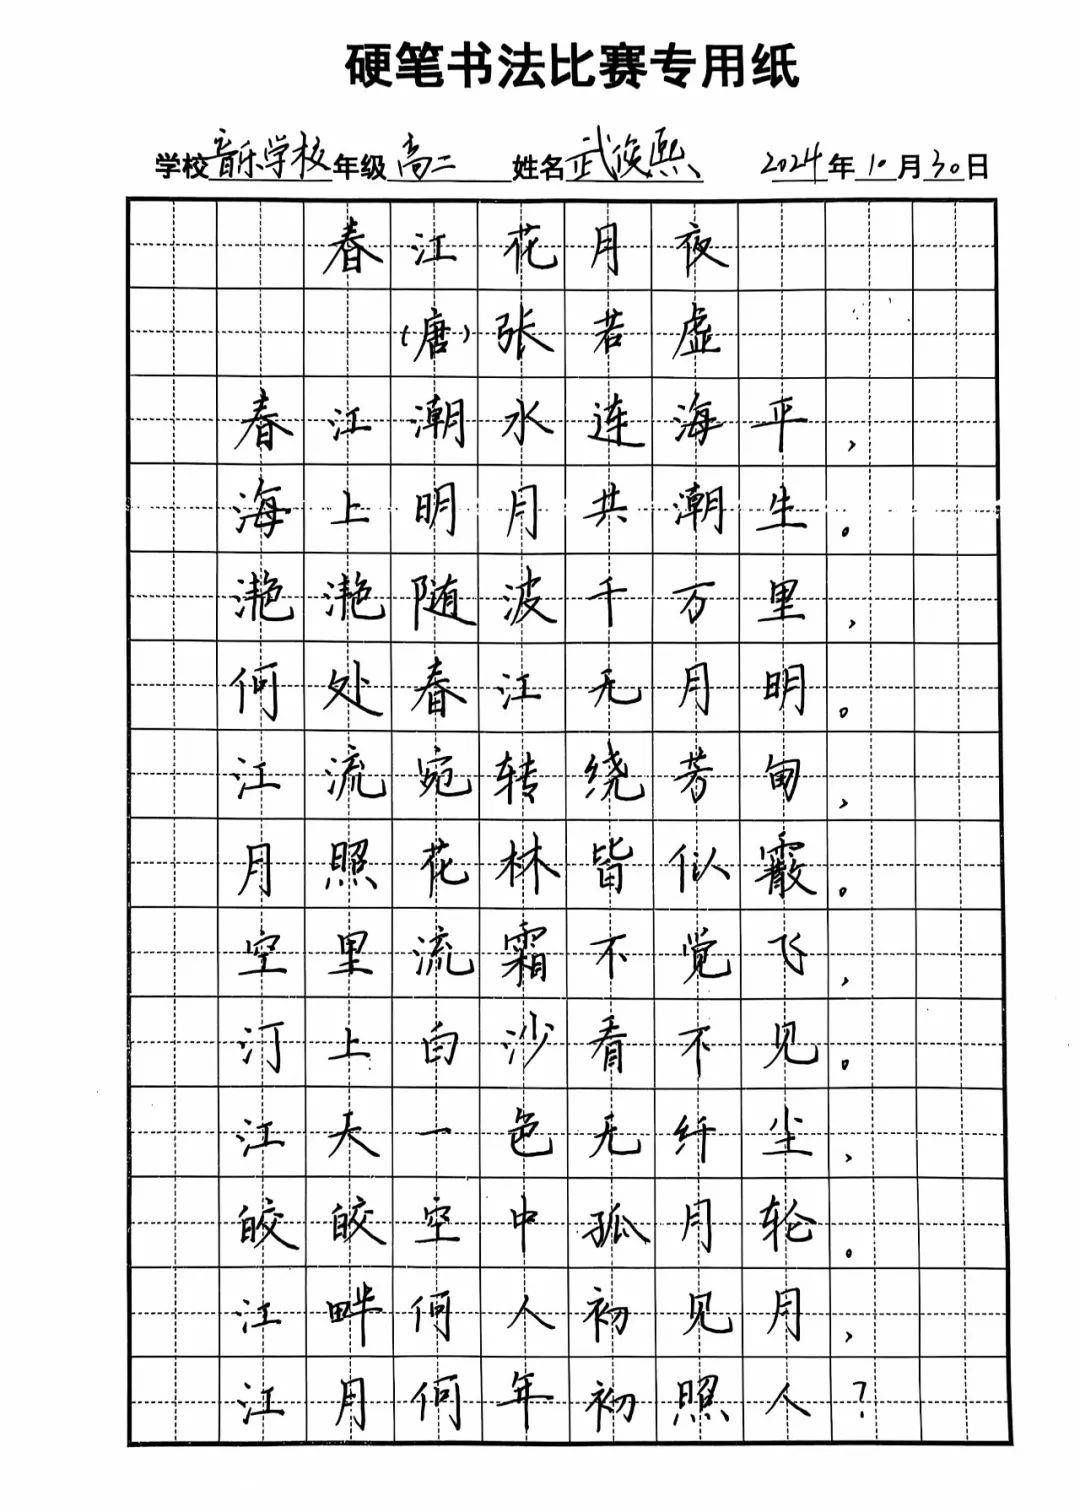 硬笔书法比赛专用纸
学校音乐学校年级高二 姓名武俊熙 2024年10月30日
春江花月夜
(唐)张若虚
春江潮水连海平,
海上明月共潮生。
滟滟随波千万里,
何处春江无月明。
江流宛转绕芳甸,
月照花林皆似霰。
空里流霜不觉飞,
汀上白沙看不见。
江天一色无纤尘,
皎皎空中孤月轮。
江畔何人初见月,
江月何年初照人?